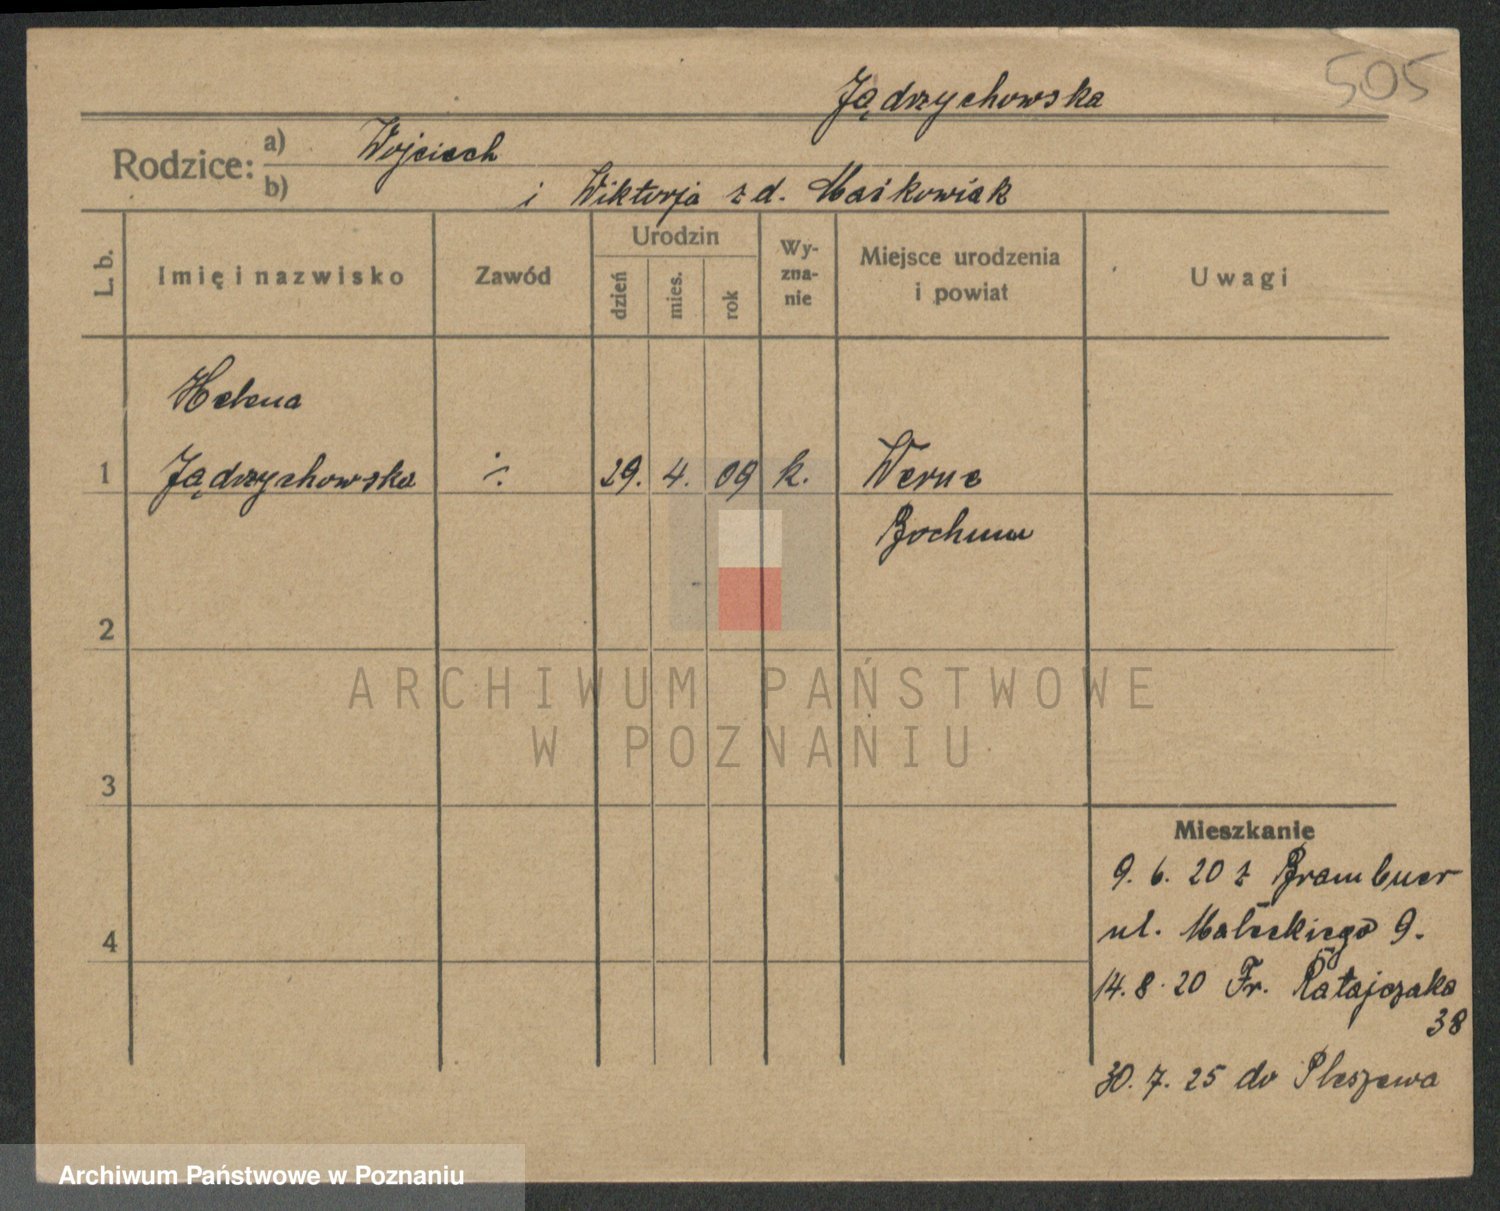 505
Jądrzychowska
Rodzice: a) Wojciech
b) i Wiktorja z d. Maśkowiak
L. b.
Imię i nazwisko
Zawód
Urodzin
dzień
mies.
rok
Wy-
zna-
nie
Miejsce urodzenia
i powiat
Uwagi
Helena
1 Jądrzychowska ·/. 29. 4. 09 k. Werne
Bochum
2
3
4
ARCHIWUM PAŃSTWOWE
W POZNANIU
Mieszkanie
9. 6. 20 z Brambuer
ul. Małeckiego 9.
14. 8. 20 Fr. Ratajczaka
38
30. 7. 25 do Pleszewa
Archiwum Państwowe w Poznaniu